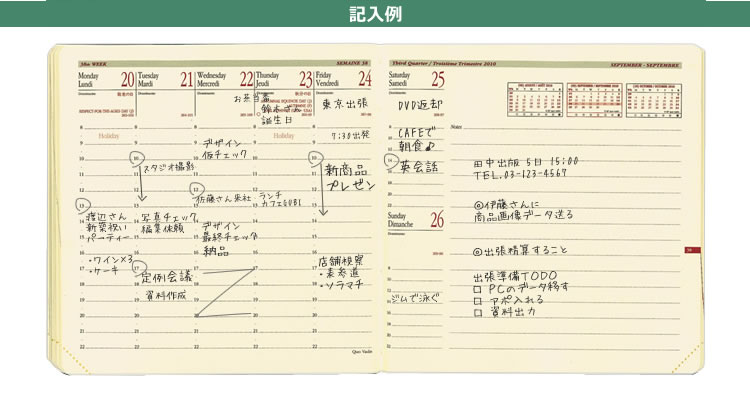 記入例
38th WEEK
SEMAINE 38
Third Quarter / Troisième Trimestre 2010
SEPTEMBER - SEPTEMBRE
Monday
Lundi
20
Tuesday
Mardi
21
Wednesday
Mercredi
22
Thursday
Jeudi
23
Friday
Vendredi
24
Saturday
Samedi
25
RESPECT FOR THE AGED DAY (J)
Holiday
Holiday
お茶当番
鈴木さん
誕生日
東京出張
7:30出発
DVD返却
CAFEで
朝食♪
英会話
デザイン
仮チェック
スタジオ撮影
新商品
プレゼン
佐藤さん来社
ランチ
カフェGUBI
渡辺さん
新築祝い
パーティー
・ワイン×3
・ケーキ
写真チェック
編集依頼
デザイン
最終チェック
納品
定例会議
資料作成
店舗視察
・表参道
・ソラマチ
Sunday
Dimanche
26
ジムで泳ぐ
Notes
田中出版 5日 15:00
TEL.03-123-4567
◎伊藤さんに
商品画像データ送る
◎出張精算すること
出張準備TODO
□ PCのデータ移す
□ アポ入れる
□ 資料出力
Quo Vadis